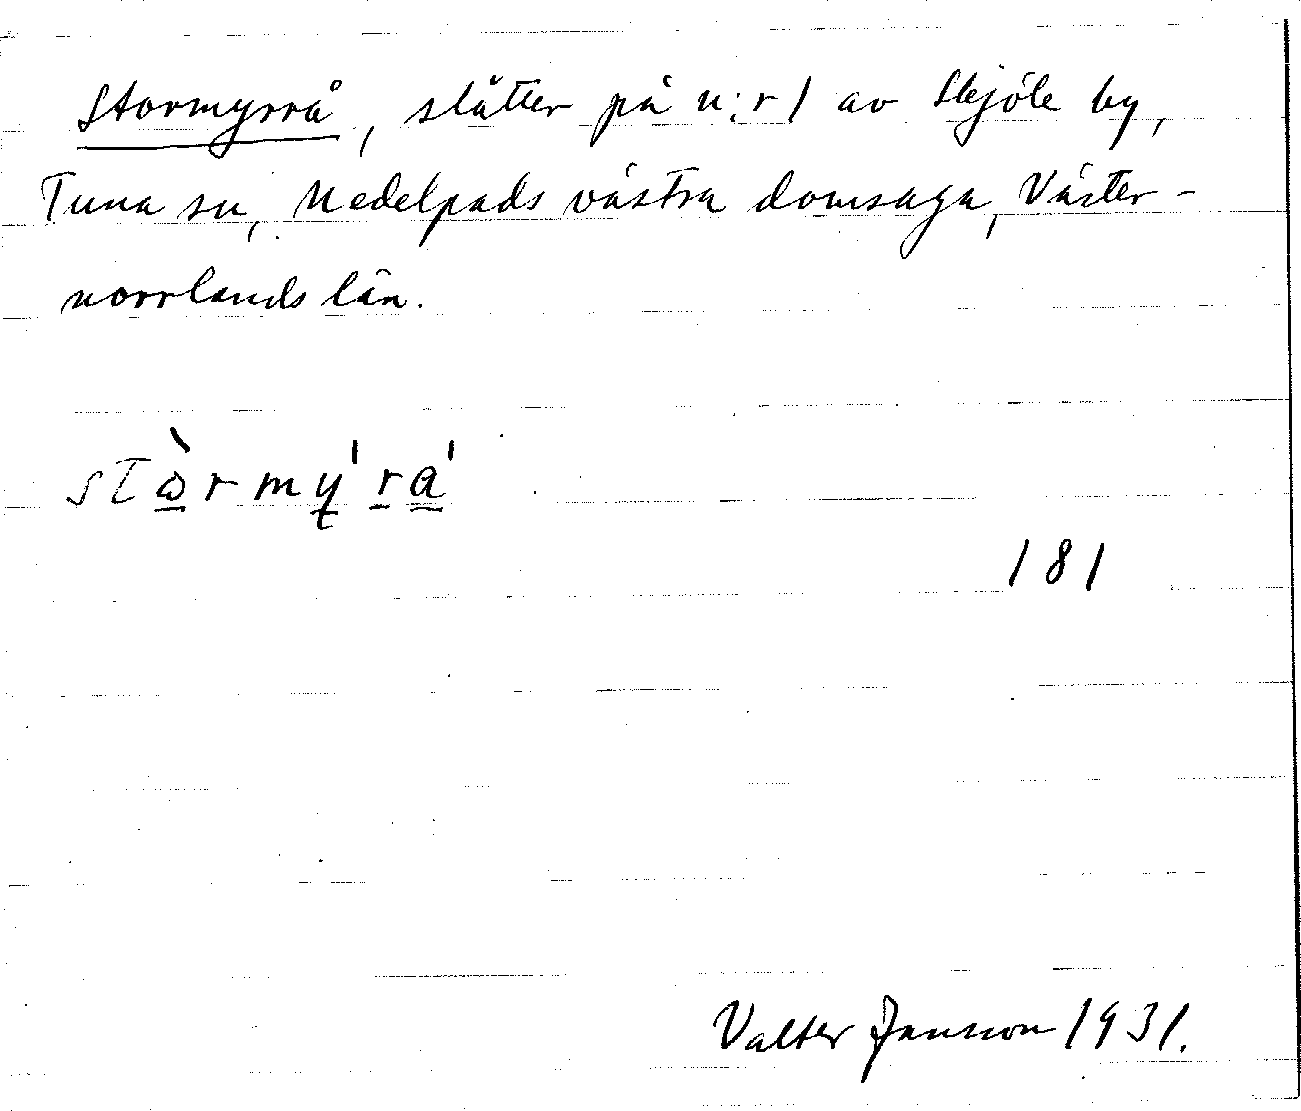 Stormyrrå, slåtter på n:r 1 av Skjöle by,
Tuna sn, Medelpads västra domsaga, Väster-
norrlands län.
stὼrmy̠'ra'
181
Valter Jansson 1931.